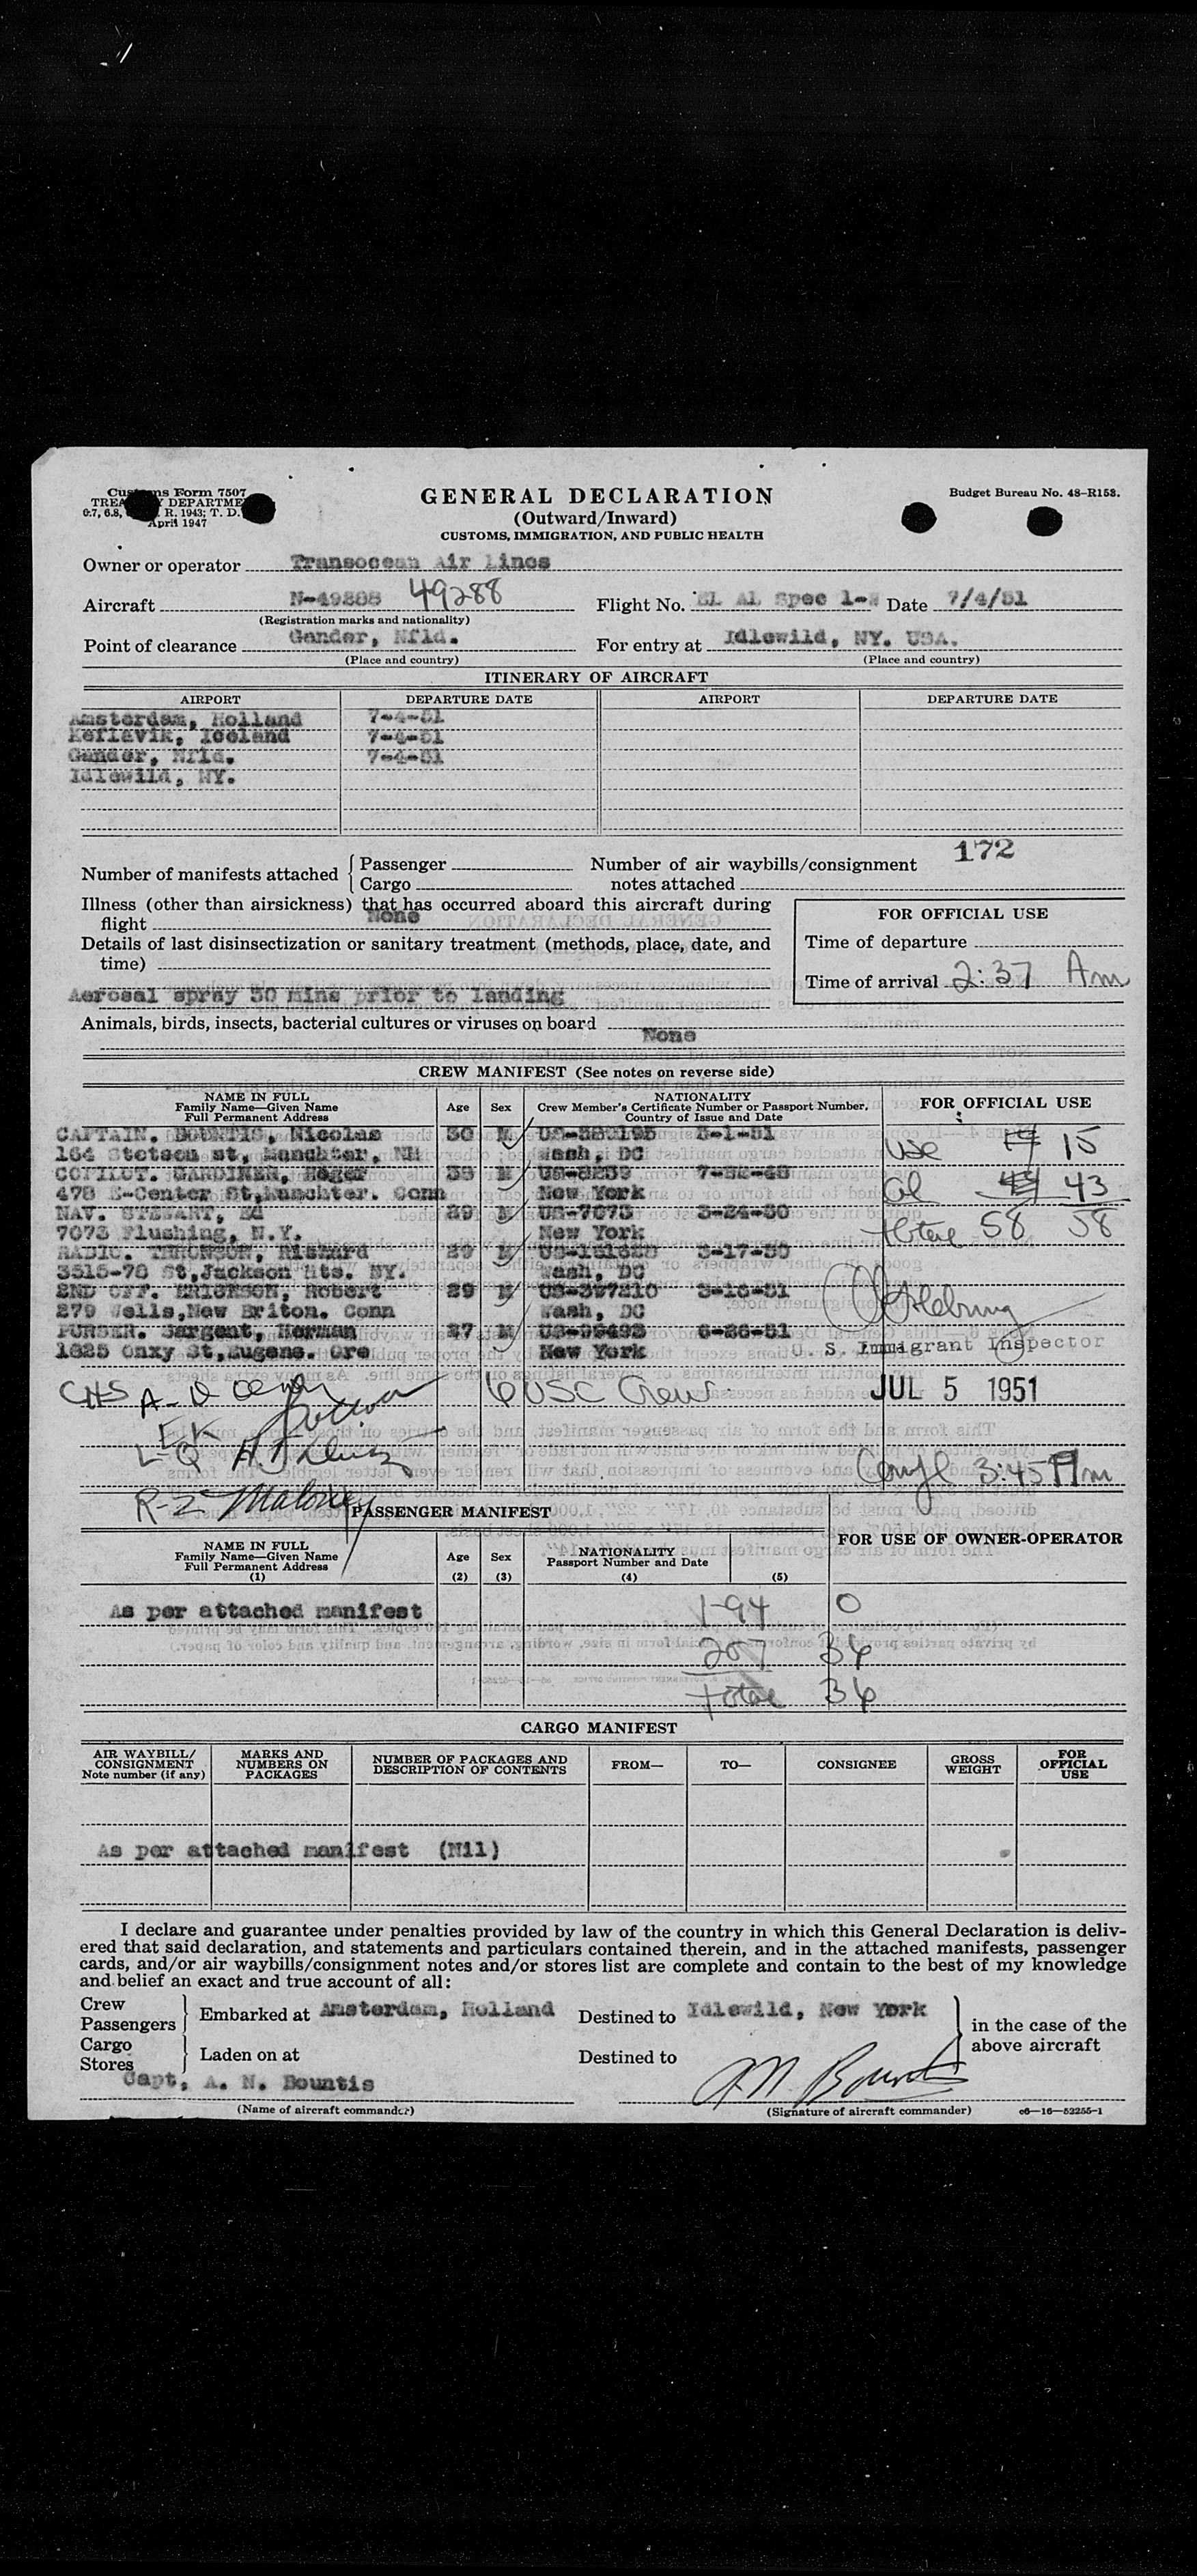 Customs Form 7507
TREASURY DEPARTMENT
6.7, 6.8, R. 1943; T. D.
April 1947
GENERAL DECLARATION
(Outward/Inward)
CUSTOMS, IMMIGRATION, AND PUBLIC HEALTH
Budget Bureau No. 48-R153.
Owner or operator Transocean Air Lines
Aircraft N-49288 49288 Flight No. EL AL Spec 1- Date 7/4/51
(Registration marks and nationality)
Point of clearance Gander, Nfld. For entry at Idlewild, NY. USA.
(Place and country) (Place and country)
ITINERARY OF AIRCRAFT
AIRPORT DEPARTURE DATE AIRPORT DEPARTURE DATE
Amsterdam, Holland 7-4-51
Keflavik, Iceland 7-4-51
Gander, Nfld. 7-4-51
Idlewild, NY.
172
Number of manifests attached { Passenger Cargo
Number of air waybills/consignment notes attached
Illness (other than airsickness) that has occurred aboard this aircraft during
flight None
Details of last disinsectization or sanitary treatment (methods, place, date, and
time)
Aerosal spray 30 mins prior to landing
FOR OFFICIAL USE
Time of departure
Time of arrival 2:37 Am
Animals, birds, insects, bacterial cultures or viruses on board None
CREW MANIFEST (See notes on reverse side)
NAME IN FULL
Family Name—Given Name
Full Permanent Address
Age Sex
NATIONALITY
Crew Member's Certificate Number or Passport Number,
Country of Issue and Date
FOR OFFICIAL USE
CAPTAIN. BOUNTIS, Nicolas 30 M US-382195 3-1-51
164 Stetson st, Manchter, NH Wash, DC
COPILOT. GARDINER, Roger 38 M US-8239
478 E-Center St, Manchter. Conn New York
NAV. STEWART, Ed 29 M US-7073 3-24-50
7073 Flushing, N.Y. New York
RADIO. THRONSON, Richard 29 M 3-17-50
3515-78 St, Jackson Hts. NY. Wash, DC
2ND OFF. ERICKSON, Robert 29 M US-397210 3-16-51
279 Wells, New Briton. Conn Wash, DC
PURSER. Sargent, Herman 27 M US-99493 6-26-51
1825 Onxy St, Eugene. Ore New York
USC 15
al 43
total 58 58
U. S. Immigrant Inspector
JUL 5 1951
CHS
6 USC Crew
L-Q
Compl 3:45 Am
R-2 Maloney
PASSENGER MANIFEST
NAME IN FULL
Family Name—Given Name
Full Permanent Address
(1)
Age
(2)
Sex
(3)
NATIONALITY
Passport Number and Date
(4) (5)
FOR USE OF OWNER-OPERATOR
As per attached manifest
1-94 0
257 36
total 36
CARGO MANIFEST
AIR WAYBILL/
CONSIGNMENT
Note number (if any)
MARKS AND
NUMBERS ON
PACKAGES
NUMBER OF PACKAGES AND
DESCRIPTION OF CONTENTS
FROM— TO— CONSIGNEE
GROSS
WEIGHT
FOR
OFFICIAL
USE
As per attached manifest (Nil)
I declare and guarantee under penalties provided by law of the country in which this General Declaration is deliv-
ered that said declaration, and statements and particulars contained therein, and in the attached manifests, passenger
cards, and/or air waybills/consignment notes and/or stores list are complete and contain to the best of my knowledge
and belief an exact and true account of all:
Crew
Passengers } Embarked at Amsterdam, Holland Destined to Idlewild, New York
Cargo
Stores } Laden on at Destined to
in the case of the
above aircraft
Capt, A. N. Bountis
A N Bountis
(Name of aircraft commander) (Signature of aircraft commander) c6—16—52255-1